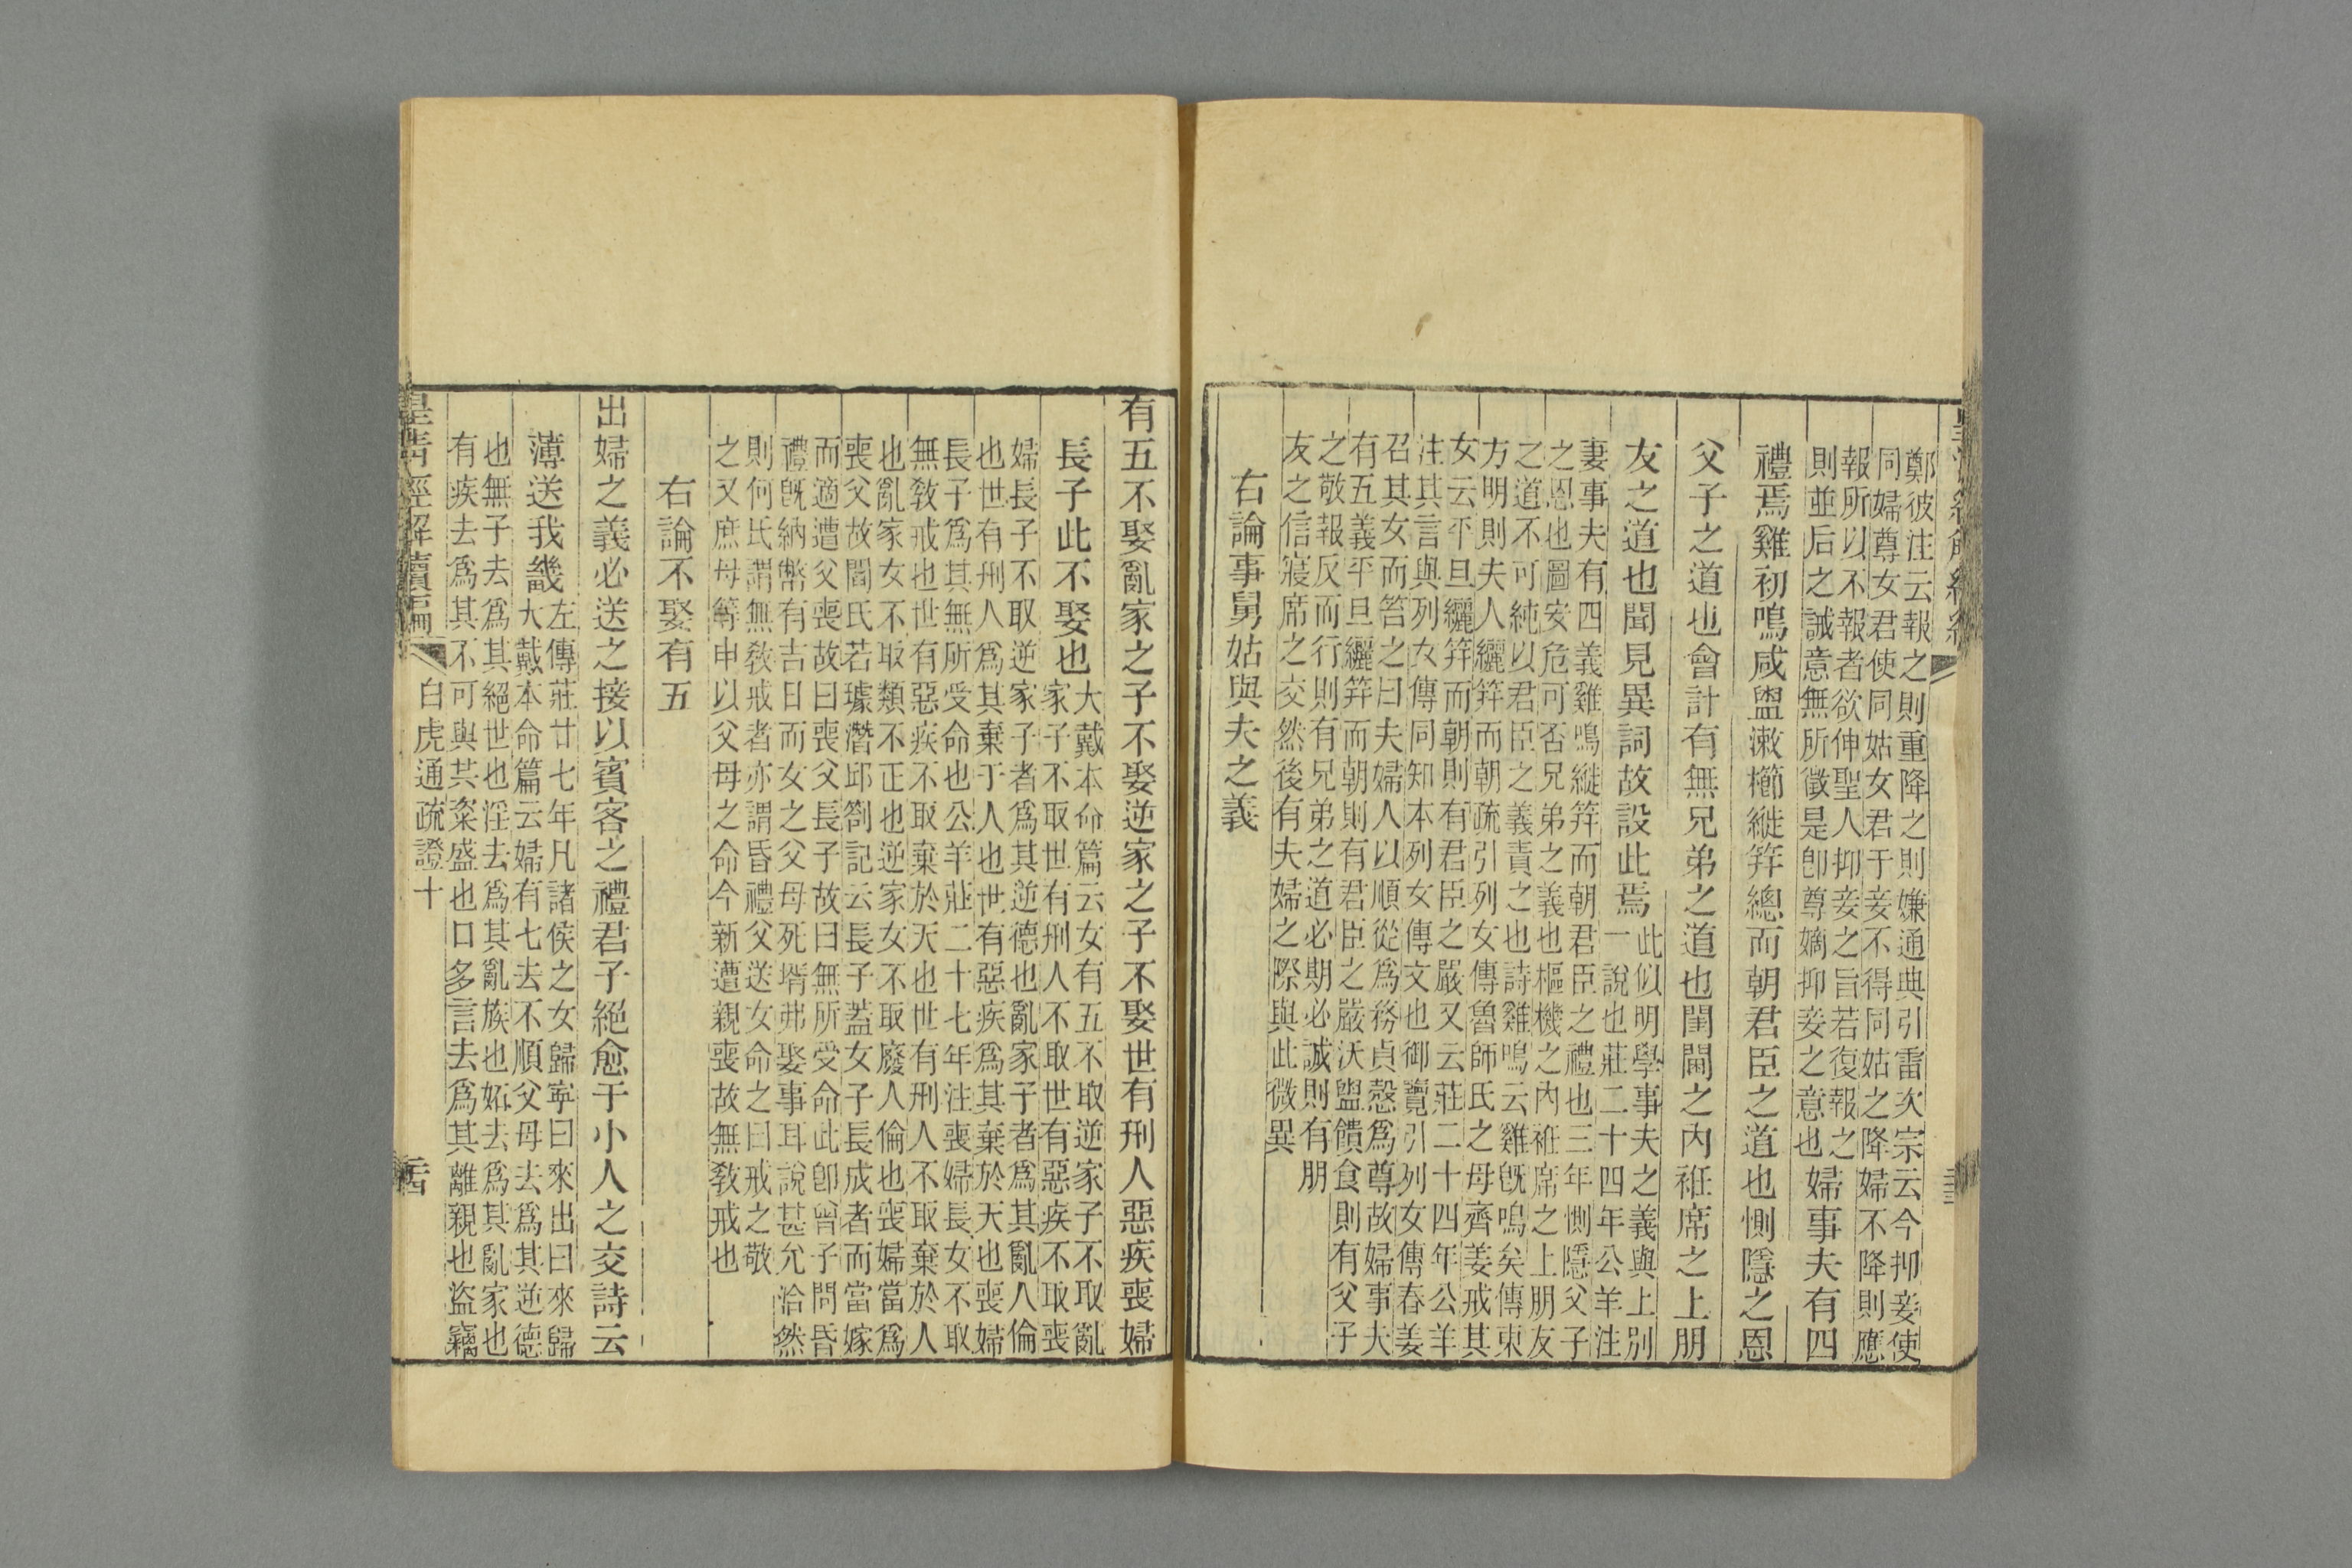 鄭彼注云報之則重降之則嫌通典引雷次宗云今抑妾使
同婦尊女君使同姑女君于妾不得同姑之降婦不降則應
報所以不報者欲伸聖人抑妾之旨若復報之
則並后之誡意無所徵是卽尊嫡抑妾之意也
婦事夫有四
禮焉雞初鳴咸盥漱櫛縰筓總而朝君臣之道也惻隱之恩
父子之道也會計有無兄弟之道也閨閫之內袵席之上朋
友之道也聞見異詞故設此焉
此似明學事夫之義與上別
一說也莊二十四年公羊注
妻事夫有四義雞鳴縰筓而朝君臣之禮也三年惻隱父子
之恩也圖安危可否兄弟之義也樞機之內袵席之上朋友
之道不可純以君臣之義責之也詩雞鳴云雞旣鳴矣傳東
方明則夫人纚筓而朝疏引列女傳魯師氏之母齊姜戒其
女云平旦纚筓而朝則有君臣之嚴又云莊二十四年公羊
注其言與列女傳同知本列女傳文也御覽引列女傳春姜
召其女而笞之曰夫婦人以順從爲務貞慤爲尊故婦事夫
有五義平旦纚筓而朝則有君臣之嚴沃盥饋食則有父子
之敬報反而行則有兄弟之道必期必誠則有朋
友之信寢席之交然後有夫婦之際與此微異
右論事舅姑與夫之義
有五不娶亂家之子不娶逆家之子不娶世有刑人惡疾喪婦
長子此不娶也
大戴本命篇云女有五不取逆家子不取亂
家子不取世有刑人不取世有惡疾不取喪
婦長子不取逆家子者爲其逆德也亂家子者爲其亂人倫
也世有刑人爲其棄于人也世有惡疾爲其棄於天也喪婦
長子爲其無所受命也公羊莊二十七年注喪婦長女不取
無敎戒也世有惡疾不取棄於天也世有刑人不取棄於人
也亂家女不取類不正也逆家女不取廢人倫也喪婦當爲
喪父故閻氏若璩潛邱劄記云長子蓋女子長成者而當嫁
而適遭父喪故曰喪父長子故曰無所受命此卽曾子問昏
禮旣納幣有吉日而女之父母死壻弗娶事耳說甚允洽然
則何氏謂無敎戒者亦謂昏禮父送女命之曰戒之敬
之又庶母等申以父母之命今新遭親喪故無敎戒也
右論不娶有五
出婦之義必送之接以賓客之禮君子絕愈于小人之交詩云
薄送我畿
左傳莊廿七年凡諸侯之女歸寧曰來出曰來歸
大戴本命篇云婦有七去不順父母去爲其逆德
也無子去爲其絕世也淫去爲其亂族也妬去爲其亂家也
有疾去爲其不可與其粢盛也口多言去爲其離親也盜竊
皇清經解續編
白虎通疏證十